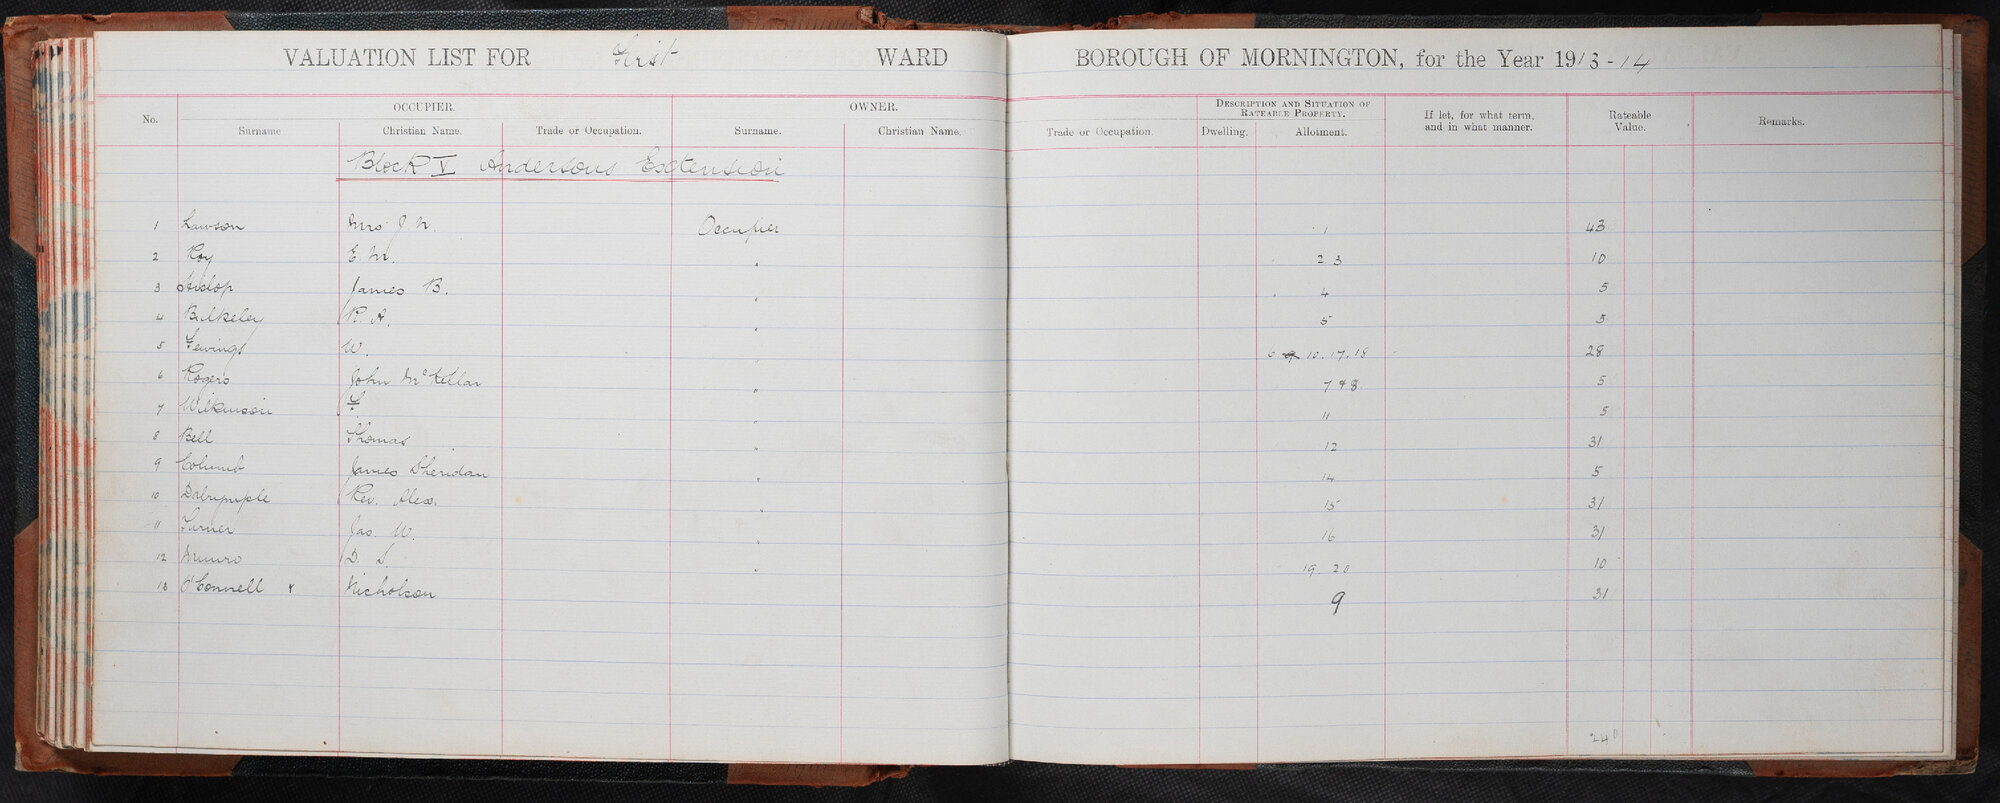 VALUATION LIST FOR First WARD BOROUGH OF MORNINGTON, for the Year 1913-14
No. OCCUPIER. OWNER. DESCRIPTION AND SITUATION OF RATEABLE PROPERTY. If let, for what term, and in what manner. Rateable Value. Remarks.
Surname Christian Name. Trade or Occupation. Surname. Christian Name. Trade or Occupation. Dwelling. Allotment.
Block V Andersons Extension
1 Lawson Mrs J. N. Occupier 1 43
2 Roy E. M. " 2 3 10
3 Hislop James B. " 4 5
4 Bulkeley R. A. " 5 5
5 Fewings W. " 6. 9 10. 17. 18 28
6 Rogers John McKellar " 7 & 8. 5
7 Wilkinson F " 11 5
8 Bell Thomas " 12 31
9 Columb James Sheridan " 14 5
10 Dalrymple Rev. Alex. " 15 31
11 Turner Jas. W. " 16 31
12 Munro D. S. " 19. 20 10
13 O'Connell & Nicholson 9 31
240